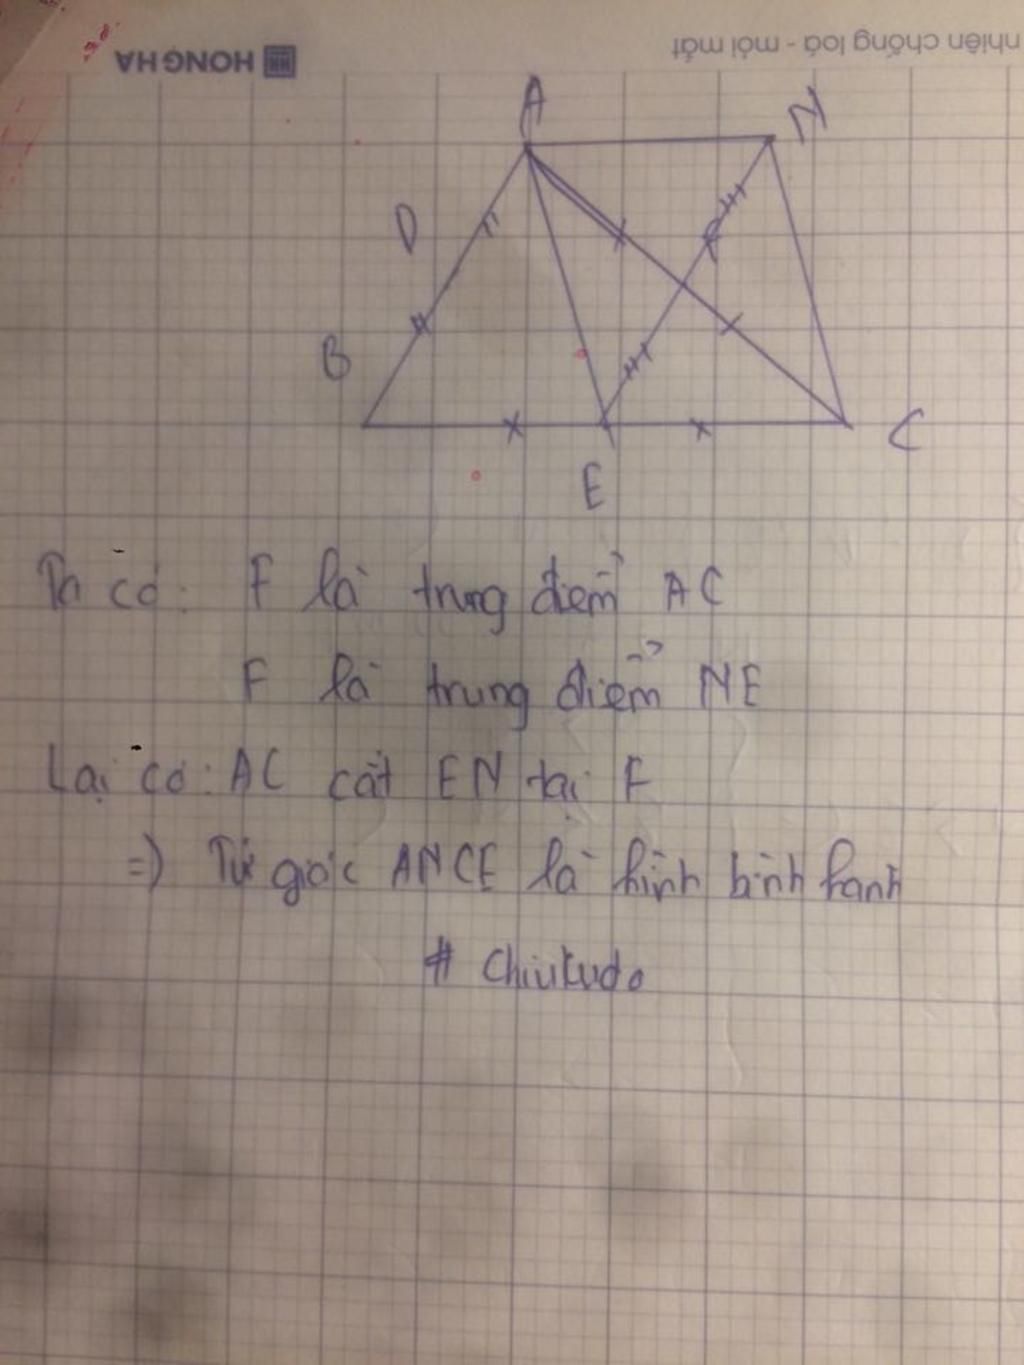 nhiên chống loá - mỏi mắt
HONG HA
A
N
D
B
C
E
Ta có: F là trung điểm AC
F là trung điểm NE
Lại có: AC cắt EN tại F
=) Tứ giác ANCE là hình bình hành
# Chiukudo